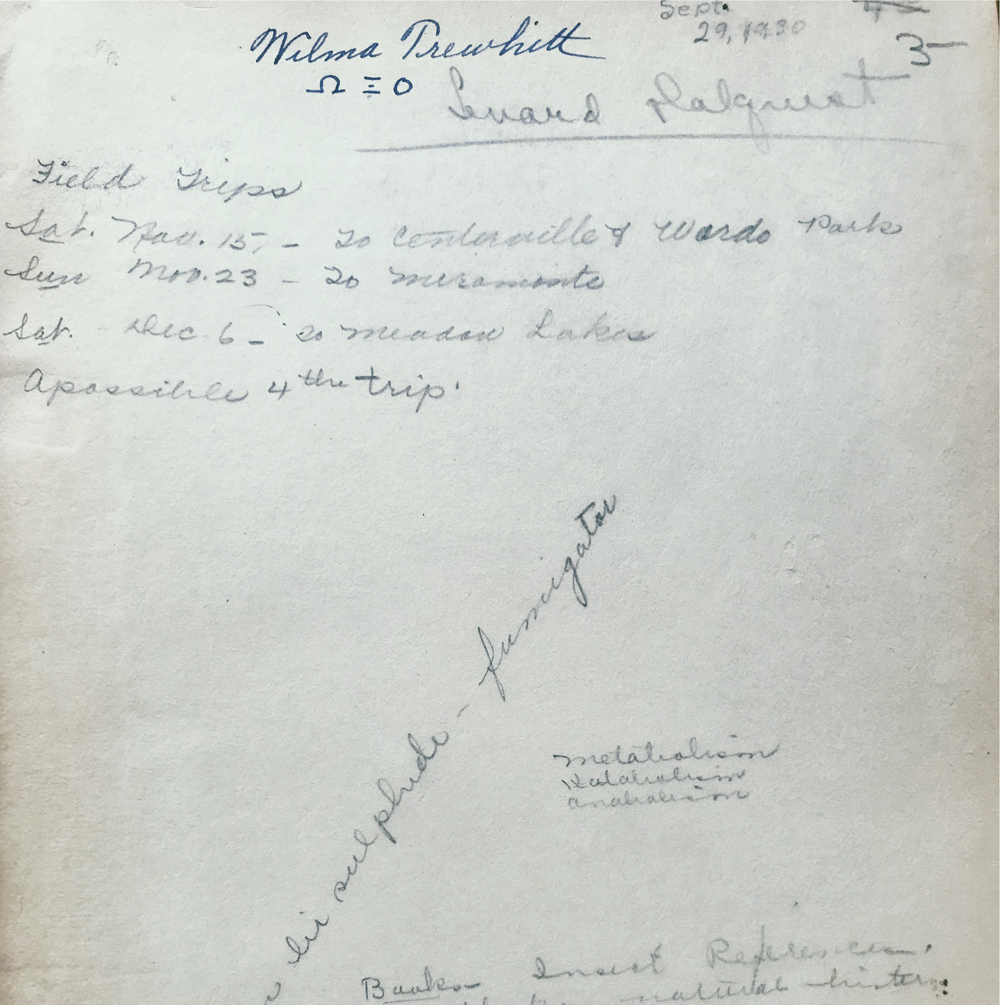 Sept.
29, 1930
3-
Wilma Trewhitt
Ω Ξ Ο
Dalquest
Field Trips
Sat. Nov. 15, - To Centerville & Wards Park
Sun Nov. 23 - To Miramonte
Sat. Dec. 6 - to Meadow Lakes
A possible 4th trip.
sulphide - fumigator
metabolism
Katabolism
anabolism
Books - Insect References.
natural